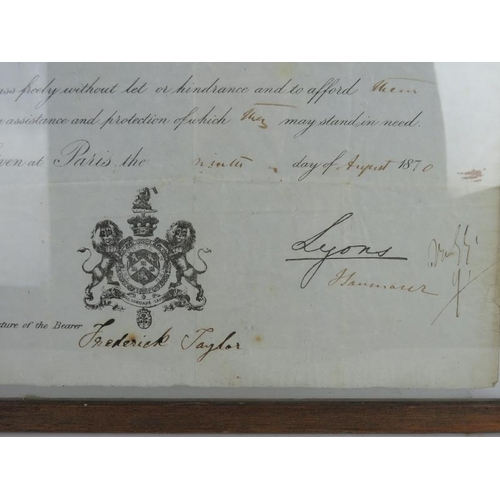 ass freely without let or hindrance and to afford them
e assistance and protection of which they may stand in need.
iven at Paris, the ninth day of August 1870
Lyons
ture of the Bearer
Frederick Taylor